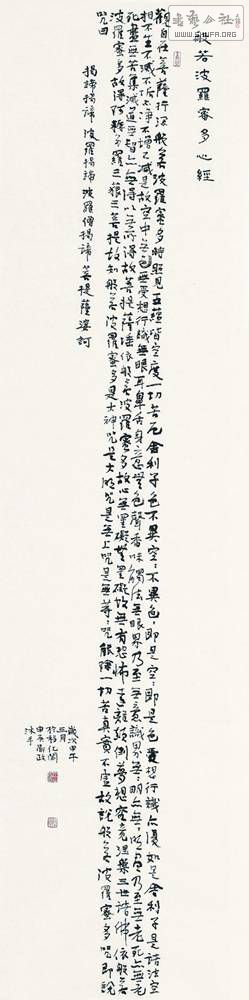 般若波羅密多心經
觀自在菩薩行深般若波羅蜜多時照見五蘊皆空度一切苦厄舍利子色不異空々不異色々即是空々即是色受想行識亦復如是舍利子是諸法空
相不生不滅不垢不淨不增不減是故空中無色無受想行識無眼耳鼻舌身意無色聲香味觸法無眼界乃至無意識界無々明亦無々明盡乃至無老死亦無老
死盡無苦集滅道無智亦無得以無所得故菩提薩埵依般若波羅蜜多故心無罣礙無罣礙故無有恐怖遠離顛倒夢想究竟涅槃三世諸佛依般若
波羅蜜多故得阿耨多羅三藐三菩提故知般若波羅蜜多是大神咒是大明咒是無上咒是無等々咒能除一切苦真實不虛故說般若波羅蜜多咒即說
咒曰
揭諦揭諦波羅揭諦波羅僧揭諦菩提薩婆訶
歲次甲午
三月
沐手